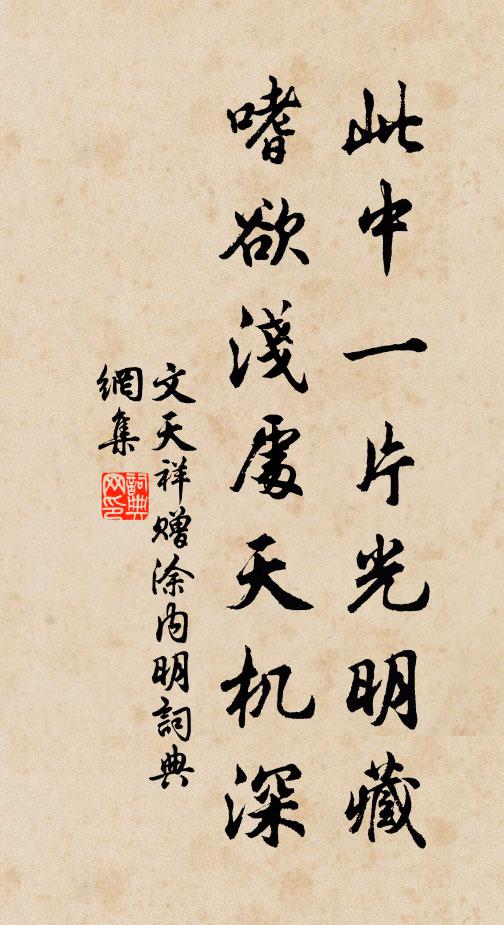 此中一片光明藏
嗜欲淺處天机深
文天祥贈涂内明詞典
網集
詞典網印